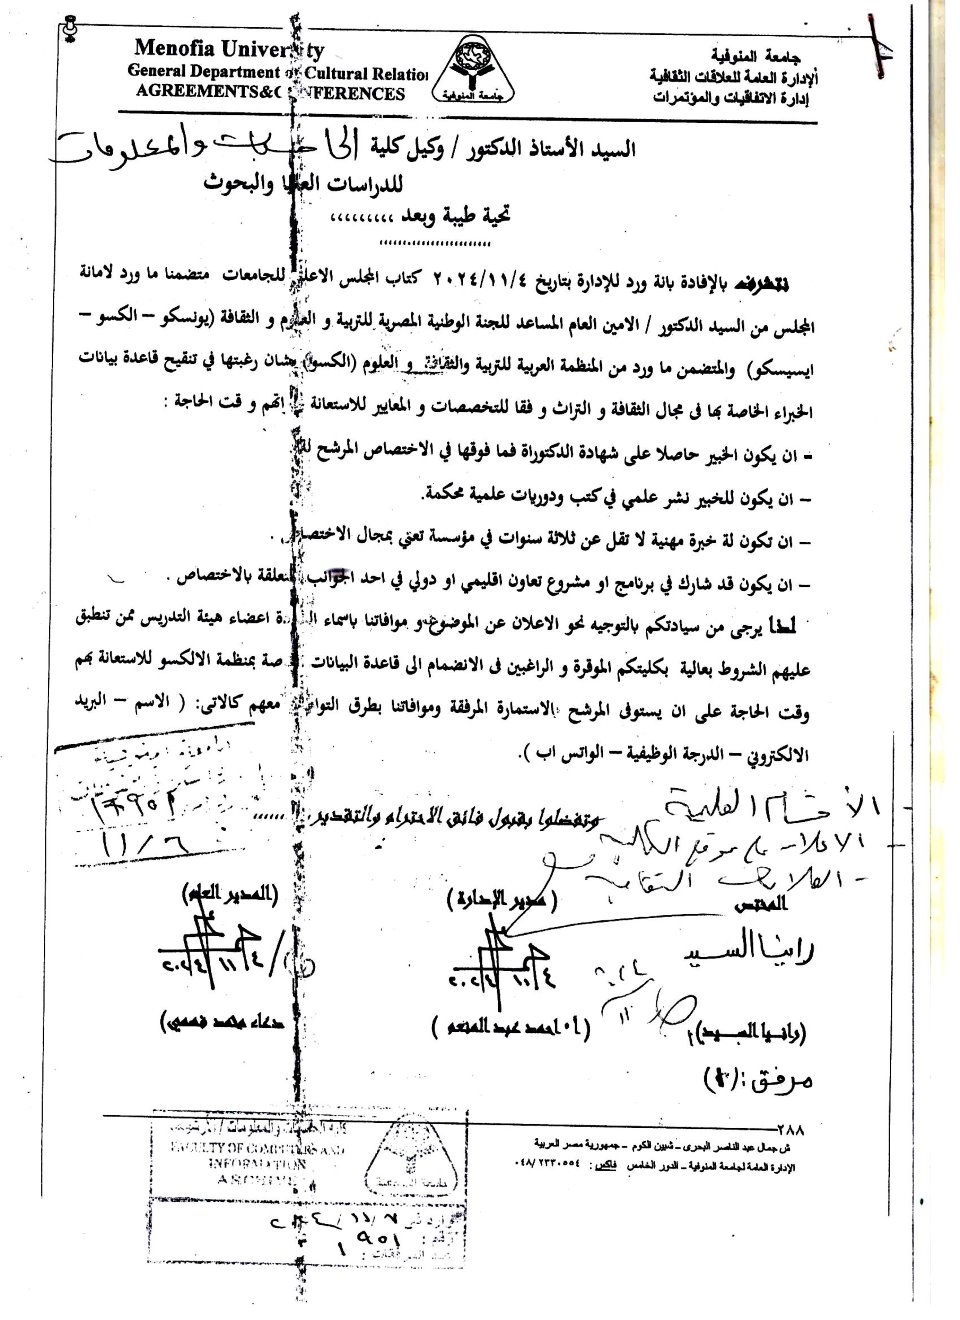 Menofia University
General Department of Cultural Relation
AGREEMENTS&CONFERENCES
جامعة المنوفية
جامعة المنوفية
الإدارة العامة للعلاقات الثقافية
إدارة الاتفاقيات والمؤتمرات
السيد الأستاذ الدكتور / وكيل كلية الحاسبات والمعلومات
للدراسات العليا والبحوث
تحية طيبة وبعد ,,,,,,,,,
نتشرف بالإفادة بانة ورد للإدارة بتاريخ ٢٠٢٤/١١/٤ كتاب المجلس الاعلى للجامعات متضمنا ما ورد لامانة
المجلس من السيد الدكتور / الامين العام المساعد للجنة الوطنية المصرية للتربية و العلوم و الثقافة (يونسكو – الكسو –
ايسيسكو) والمتضمن ما ورد من المنظمة العربية للتربية والثقافة و العلوم (الكسو) بشان رغبتها في تنقيح قاعدة بيانات
الخبراء الخاصة بها فى مجال الثقافة و التراث و فقا للتخصصات و المعايير للاستعانة بخبراتهم و قت الحاجة :
- ان يكون الخبير حاصلا على شهادة الدكتوراة فما فوقها في الاختصاص المرشح لة
– ان يكون للخبير نشر علمي في كتب ودوريات علمية محكمة.
– ان تكون لة خبرة مهنية لا تقل عن ثلاثة سنوات في مؤسسة تعني بمجال الاختصاص .
– ان يكون قد شارك في برنامج او مشروع تعاون اقليمي او دولي في احد الجوانب المتعلقة بالاختصاص .
لذا يرجى من سيادتكم بالتوجيه نحو الاعلان عن الموضوع و موافاتنا باسماء السادة اعضاء هيئة التدريس ممن تنطبق
عليهم الشروط بعالية بكليتكم الموقرة و الراغبين فى الانضمام الى قاعدة البيانات الخاصة بمنظمة الالكسو للاستعانة بهم
وقت الحاجة على ان يستوفى المرشح الاستمارة المرفقة وموافاتنا بطرق التواصل معهم كالاتى: ( الاسم – البريد
الالكتروني – الدرجة الوظيفية – الواتس اب ).
وتفضلوا بقبول فائق الاحترام والتقدير ,,,,,,
الأقسام العلمية
الاعلان على موقع الكلية
- العلاقات الثقافية
١١/٦
المختص
(مدير الإدارة )
(المدير العام)
رانيا السيد
٢٠٢٤/١١/٤
٢٠٢٤/١١/٤
(رانيا السيد)
(أ/ احمد عبد المنعم )
دعاء محمد فهمي)
مرفق :
٢٨٨
ش جمال عبد الناصر البحرى – شبين الكوم – جمهورية مصر العربية
الإدارة العامة لجامعة المنوفية – الدور الخامس فاكس : ٠٤٨/٢٢٣٠٥٥٤
كلية الحاسبات والمعلومات / الأرشيف
FACULTY OF COMPUTERS AND
INFORMATION
ARCHIVE
جامعة المنوفية
وارد في ٢٠٢٤/١١/٧
رقم : ٩٥١
عدد المرفقات : ١